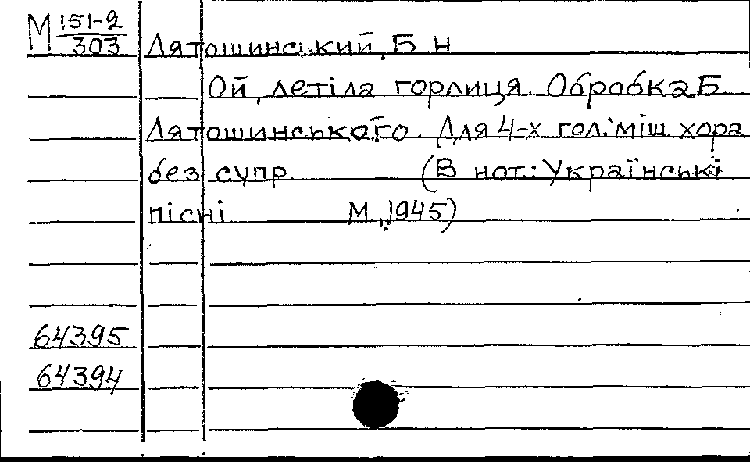 М 151-2
303 Лятошинський, Б Н
Ой, летіла горлиця Обробка Б
Лятошинського. Для 4-х гол. міш хора
без супр. (В нот.: Українські
пісні М., 1945)
64395
64394